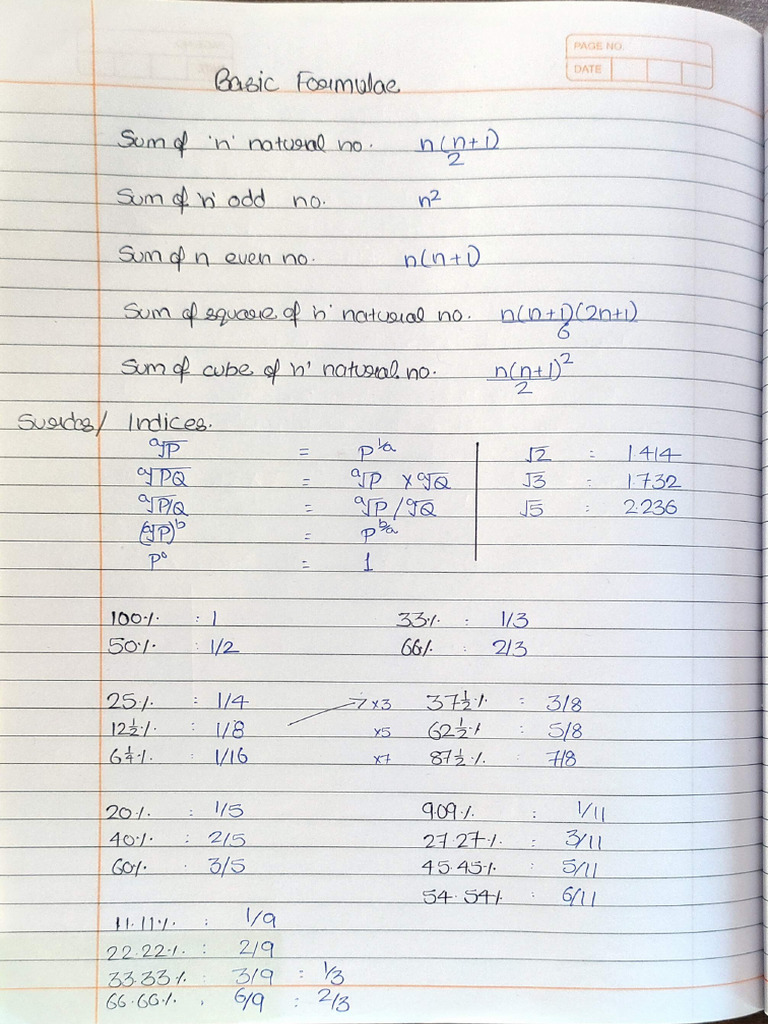 PAGE NO.
DATE
Basic Formulae
Sum of 'n' natural no. n(n+1)/2
Sum of 'n' odd no. n²
Sum of n even no. n(n+1)
Sum of square of 'n' natural no. n(n+1)(2n+1)/6
Sum of cube of 'n' natural no. n(n+1)²/2
Surdos/ Indices.
ᵃ√P = P^1/a
ᵃ√PQ = ᵃ√P × ᵃ√Q
ᵃ√P/Q = ᵃ√P / ᵃ√Q
(ᵃ√P)^b = P^b/a
P⁰ = 1
√2 : 1.414
√3 : 1.732
√5 : 2.236
100% : 1
50% : 1/2
33% : 1/3
66% : 2/3
25% : 1/4
12½% : 1/8
6¼% : 1/16
×3 37½% : 3/8
×5 62½% : 5/8
×7 87½% : 7/8
20% : 1/5
40% : 2/5
60% : 3/5
9.09% : 1/11
27.27% : 3/11
45.45% : 5/11
54.54% : 6/11
11.11% : 1/9
22.22% : 2/9
33.33% : 3/9 : 1/3
66.66% : 6/9 : 2/3